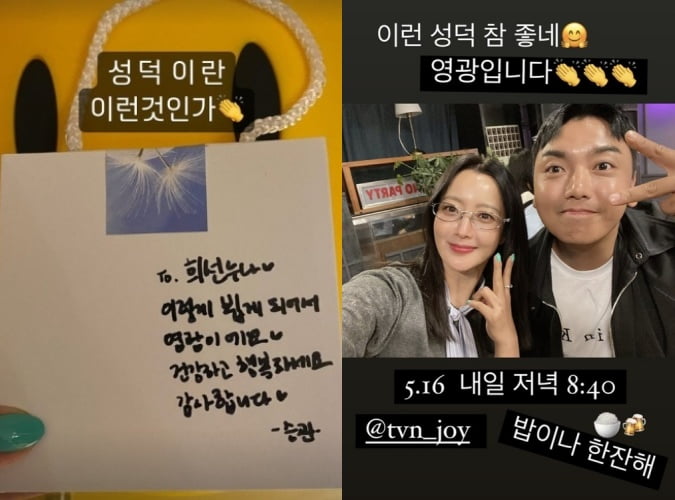 성덕 이란
이런것인가👏
To. 희선누나♥
이렇게 뵙게 되어서
영광이에요♥
건강하고 행복하세요
감사합니다♥
-승관-
이런 성덕 참 좋네🤗
영광입니다👏👏👏
NO PARTY
5.16 내일 저녁 8:40
@tvn_joy
🍚🍻
밥이나 한잔해